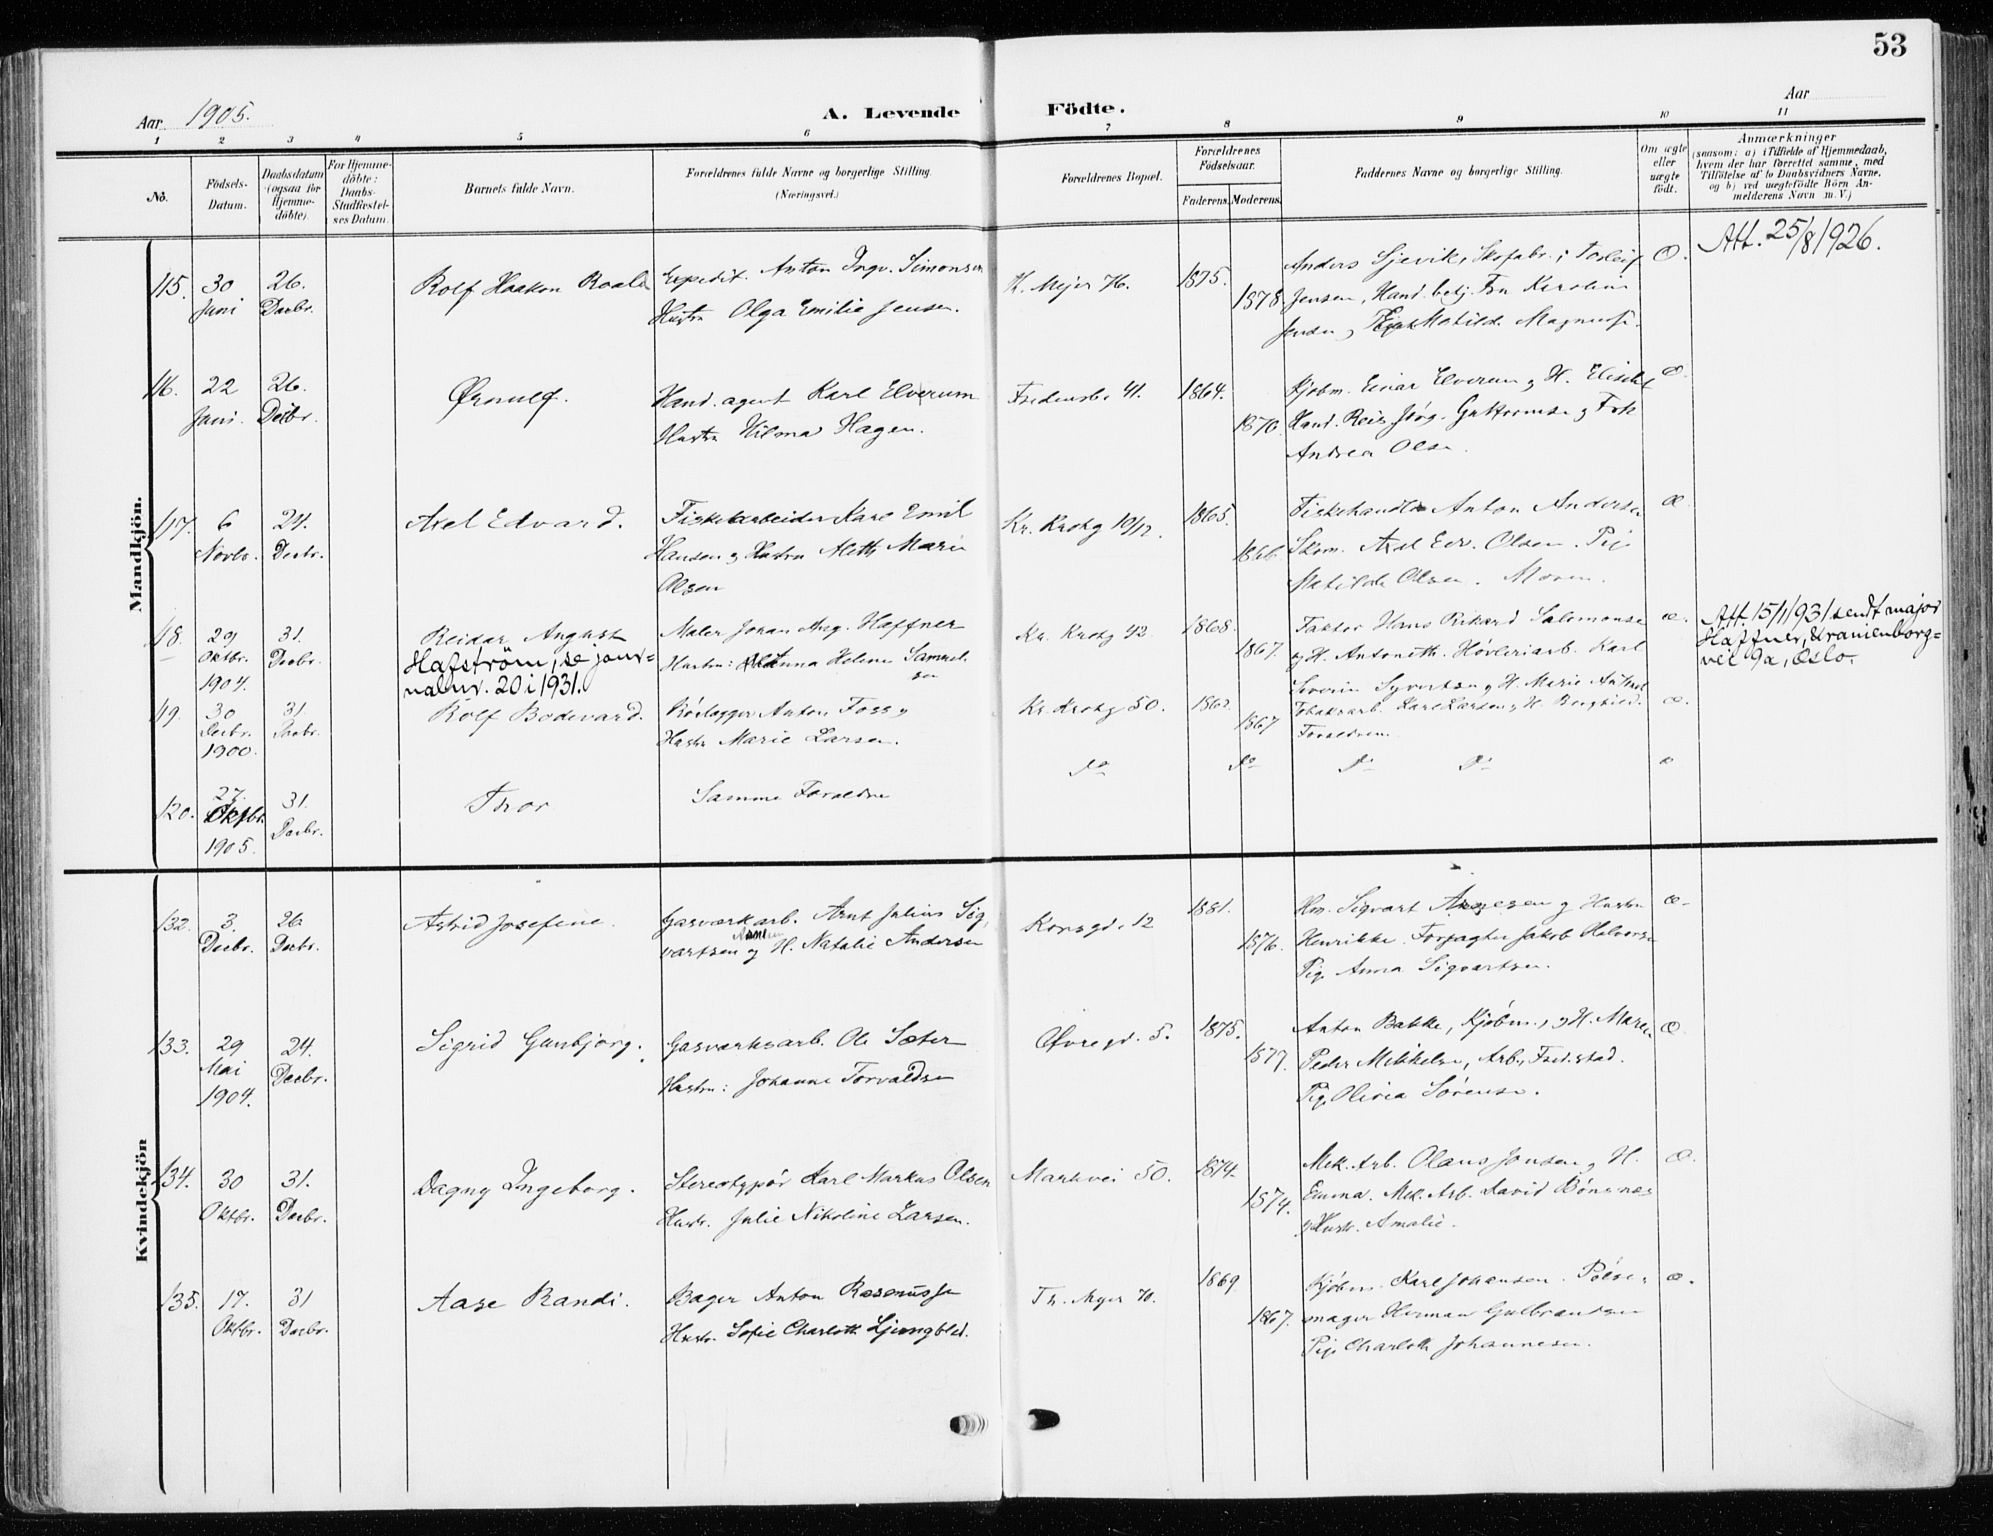 53
Aar 1905.
A. Levende Födte.
Aar
1 2 3 4 5 6 7 8 9 10 11
No.
Födsels-Datum.
Daabsdatum (ogsaa for Hjemme-döbte).
For Hjemme-döbte: Daabs-Stadfæstel-ses Datum.
Barnets fulde Navn.
Forældrenes fulde Navne og borgerlige Stilling.
(Næringsvei.)
Forældrenes Bopæl.
Forældrenes Födselsaar.
Faderens. Moderens.
Faddernes Navne og borgerlige Stilling.
Om ægte eller uægte födt.
Anmærkninger
(saasom: a) i Tilfælde af Hjemmedaab,
hvem der har forrettet samme, med
Tilföielse af to Daabsvidners Navne,
og b) ved uægtefödte Börn An-
melderens Navn m. V.)
Mandkjön.
115. 30 Juni 26. Decbr. Rolf Haakon Roald
Expedit. Anton Ingv. Simonsen
Hustru Olga Emilie Jensen.
Th. Mejer 76. 1875. 1878.
Anders Sjevik, Skofabr.;
Jensen, Hand. betj. Fru Karoline
Jensen Matilde
Æ.
Att. 25/8 1926.
116. 22 Juni. 26. Decbr. Ørnulf.
Hand. agent Karl Elverum
Hustru Hilma Hagen.
Fredensb. 41. 1864. 1870.
Kjøbm. Einar Elverum og H.
Hand. Reis. Jørg. Guttormsen og Frk.
Andrea Olsen.
Æ.
117. 6 Novbr. 24. Decbr. Axel Edvard.
Fiskearbeider Karl Emil
Hansen og Hustru Marie
Olsen
Kr. Krohg 10/12. 1865. 1866.
Fiskehandler Anton Andersen
Skom. Axel Edv. Olsen. Pige
Matilde Olsen. Moren.
Æ
118. 29 Oktbr. 1904. 31. Decbr. Reidar August
Hafström, se jour-
nalnr. 20 i 1931.
Maler Johan Aug. Haffner
Hustru: Anna Helene Samuel-
sen
Kr. Krohg 42. 1868. 1867.
Faktor Hans Rikard Salomonsen
og H. Antoneth. Høvleriarb. Karl
Severin Syvertsen og H. Marie
æ.
Att. 15/1 1931 sendt major
Haffner, Uranienborg-
vei 9a, Oslo.
119. 30 Decbr. 1900. 31 Decbr. Rolf Bodevard.
Rörlægger Anton Foss og
Hustr. Marie Larsen.
Kr. Krohg 50. 1867
Tobaksarb. Karl Larsen og H. Borghild.
Forældrene.
æ.
120. 27. Oktbr. 1905. 31. Decbr. Thor
Samme Forældre
do do do do æ
Kvindekjön
132. 3. Decbr. 26 Decbr. Astrid Josefine.
Gasværkarb. Arnt Julius Sig-
vartsen og H. Natalie Andersen
Korsgd. 12 1881. 1876.
Sigvart og Hustru
Henrikke. Forpagter Jakob Halvorsen
Pige Anna Sigvartsen.
æ.
133. 29 Mai 1904. 24. Decbr. Sigrid Gunbjørg.
Gasværksarb. Ole Sæter
Hustru: Johanne Torvaldsen
Øvregd. 5. 1875. 1877.
Anton Bakke, Kjøbm., og H. Maren
Peder Mikkelsen, Arb., Fredrstad.
Pige Olivia Sørensen.
Æ.
134. 30 Oktbr. 31. Decbr. Dagny Ingeborg.
Stereotypør Karl Markus Olsen
Hustr. Julie Nikoline Larsen.
Markvei 50. 1874. 1874.
Mek. Arb. Olaus Jonsen og H.
Emma. Mek. Arb. David Bönsnæs
og Hustr. Amalie.
Æ.
135. 17. Oktbr. 31 Decbr. Aase Randi.
Bager Anton Rasmussen
Hustr. Sofie Charlotte Ljungblad.
Th. Mejer 70. 1869. 1867.
Kjøbm. Karl Johansen. Pölse-
mager Herman Gulbrandsen
Pige Charlotte Johannesen.
æ.